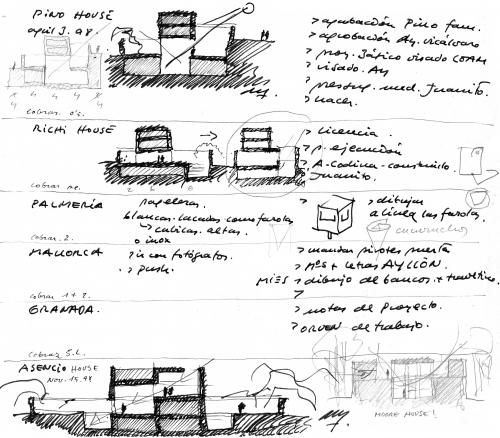 PINO HOUSE
april 3. 98.
> aprobación Pino fam.
> aprobación Ay. Vicálvaro
> proy. básico visado COAM
> visado. Ay
> presup. med. Juanito.
> hacer.
cobrar
RICHI HOUSE
> licencia.
> p. ejecución
> A. Codina - construirlo.
Juanito.
cobrar
PALMERÍA
papeleras.
blancas. lacadas como farolas
cúbicas. altas.
o inox
> dibujar
a línea las farolas.
cobrar. 2.
MALLORCA
> ir con fotógrafos.
> push.
> mandar pivotes puerta
> Mºs + letras AYLLÓN.
MIES > dibujo de bancos. + travertino.
>
cobrar 1 + 2.
GRANADA.
> notas de proyecto.
> orden de trabajo.
cobrar S.L.
ASENCIO HOUSE
NOV. 15. 98
MOORE HOUSE!